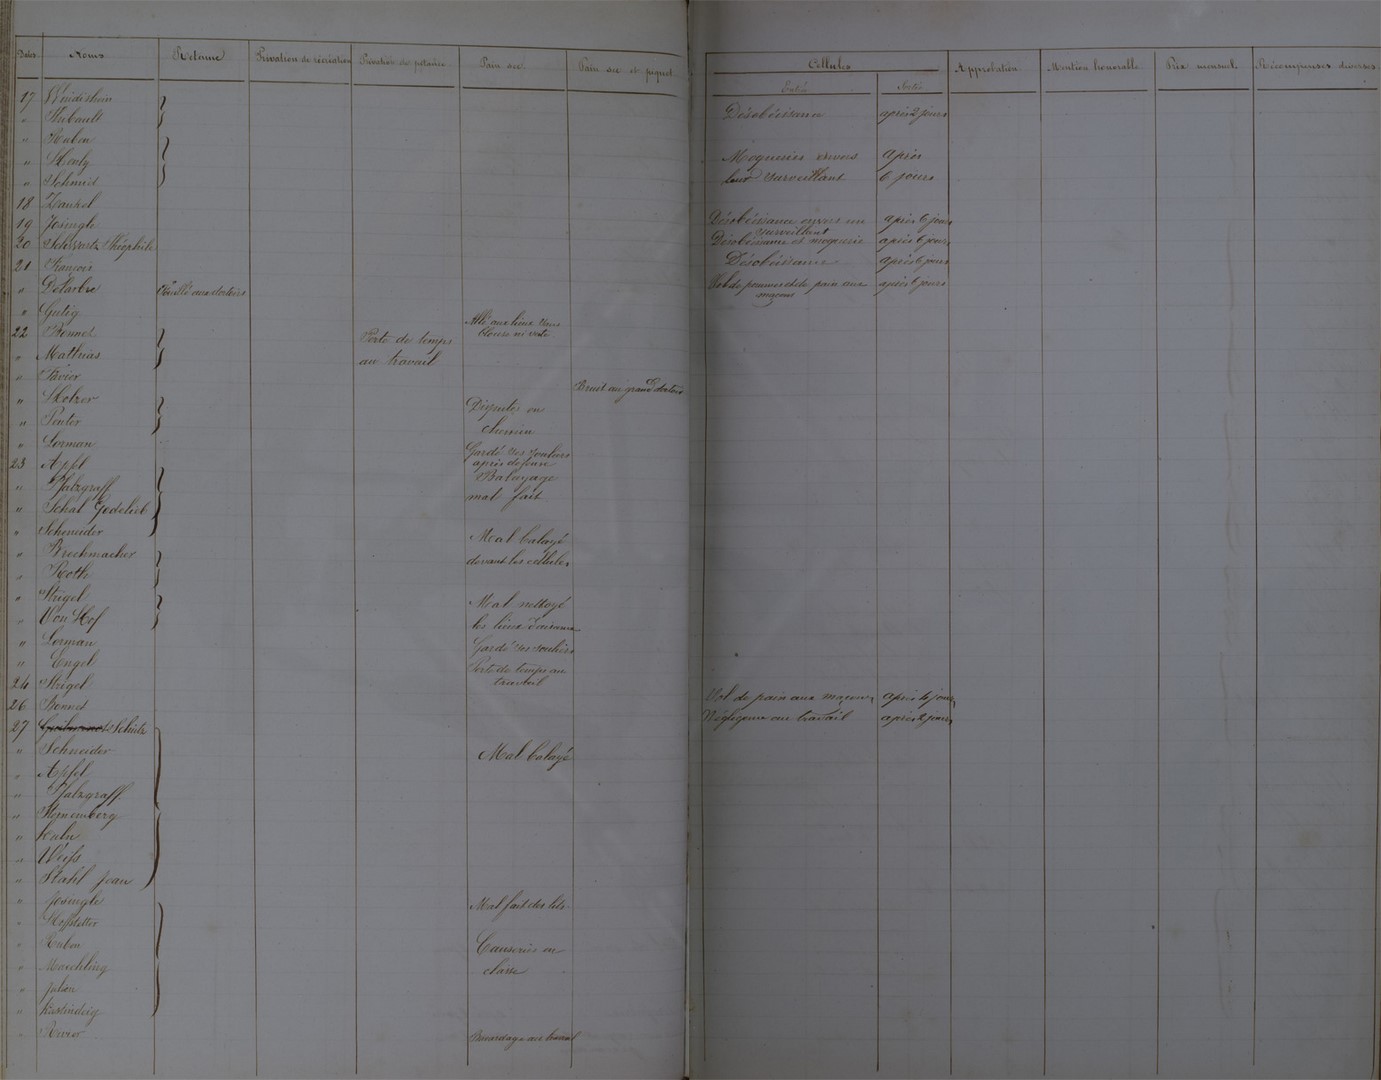 Dates Noms Retenue Privation de récréation Privation de pitance Pain sec Pain sec et piquet Cellules Approbation Mention honorable Prix mensuel Récompenses diverses
Entrée Sortie
17 Windeshein
" Thibault Désobéissance après 2 jours
" Ruban
" Hauly Moqueries envers Après
" Schmid leur surveillant 6 jours
18 Hankel
19 Josingle Désobéissance envers un surveillant après 6 jours
20 Schwartz Théophile Désobéissance et moquerie après 6 jours
21 François Désobéissance après 6 jours
" Delarbre Fouillé aux dortoirs Vol de pommes et de pain aux maçons après 6 jours
" Gutig Allé aux lieux sans
22 Bonnet blouse ni veste
Perte de temps
" Mathias au travail
" Favier Bruit au grand dortoir
" Holzer Disputes en
" Peuter chemin
" Lorman Gardé ses souliers
23 Apfel après déjeuner
" Falzgraff Balayage
" Schal Godelieb mal fait
" Schneider Mal balayé
" Brechmacher devant les cellules
" Roth
" Strigel Mal nettoyé
" Von Hof les lieux d'aisance
" Lorman Gardé ses souliers
" Engel Perte de temps au
24 Strigel travail Vol de pain aux maçons après 4 jours
26 Bonnet Négligence au travail après 2 jours
27 Schultz
" Schneider Mal balayé
" Apfel
" Falzgraff
" Stonemberg
" Kuhn
" Weiss
" Stahl Jean
" Josingle Mal fait des lits
" Hoffstetter
" Ruban Causeries en
" Moechling classe
" Julien
" Kostindeig
" Rivier Bavardage au travail